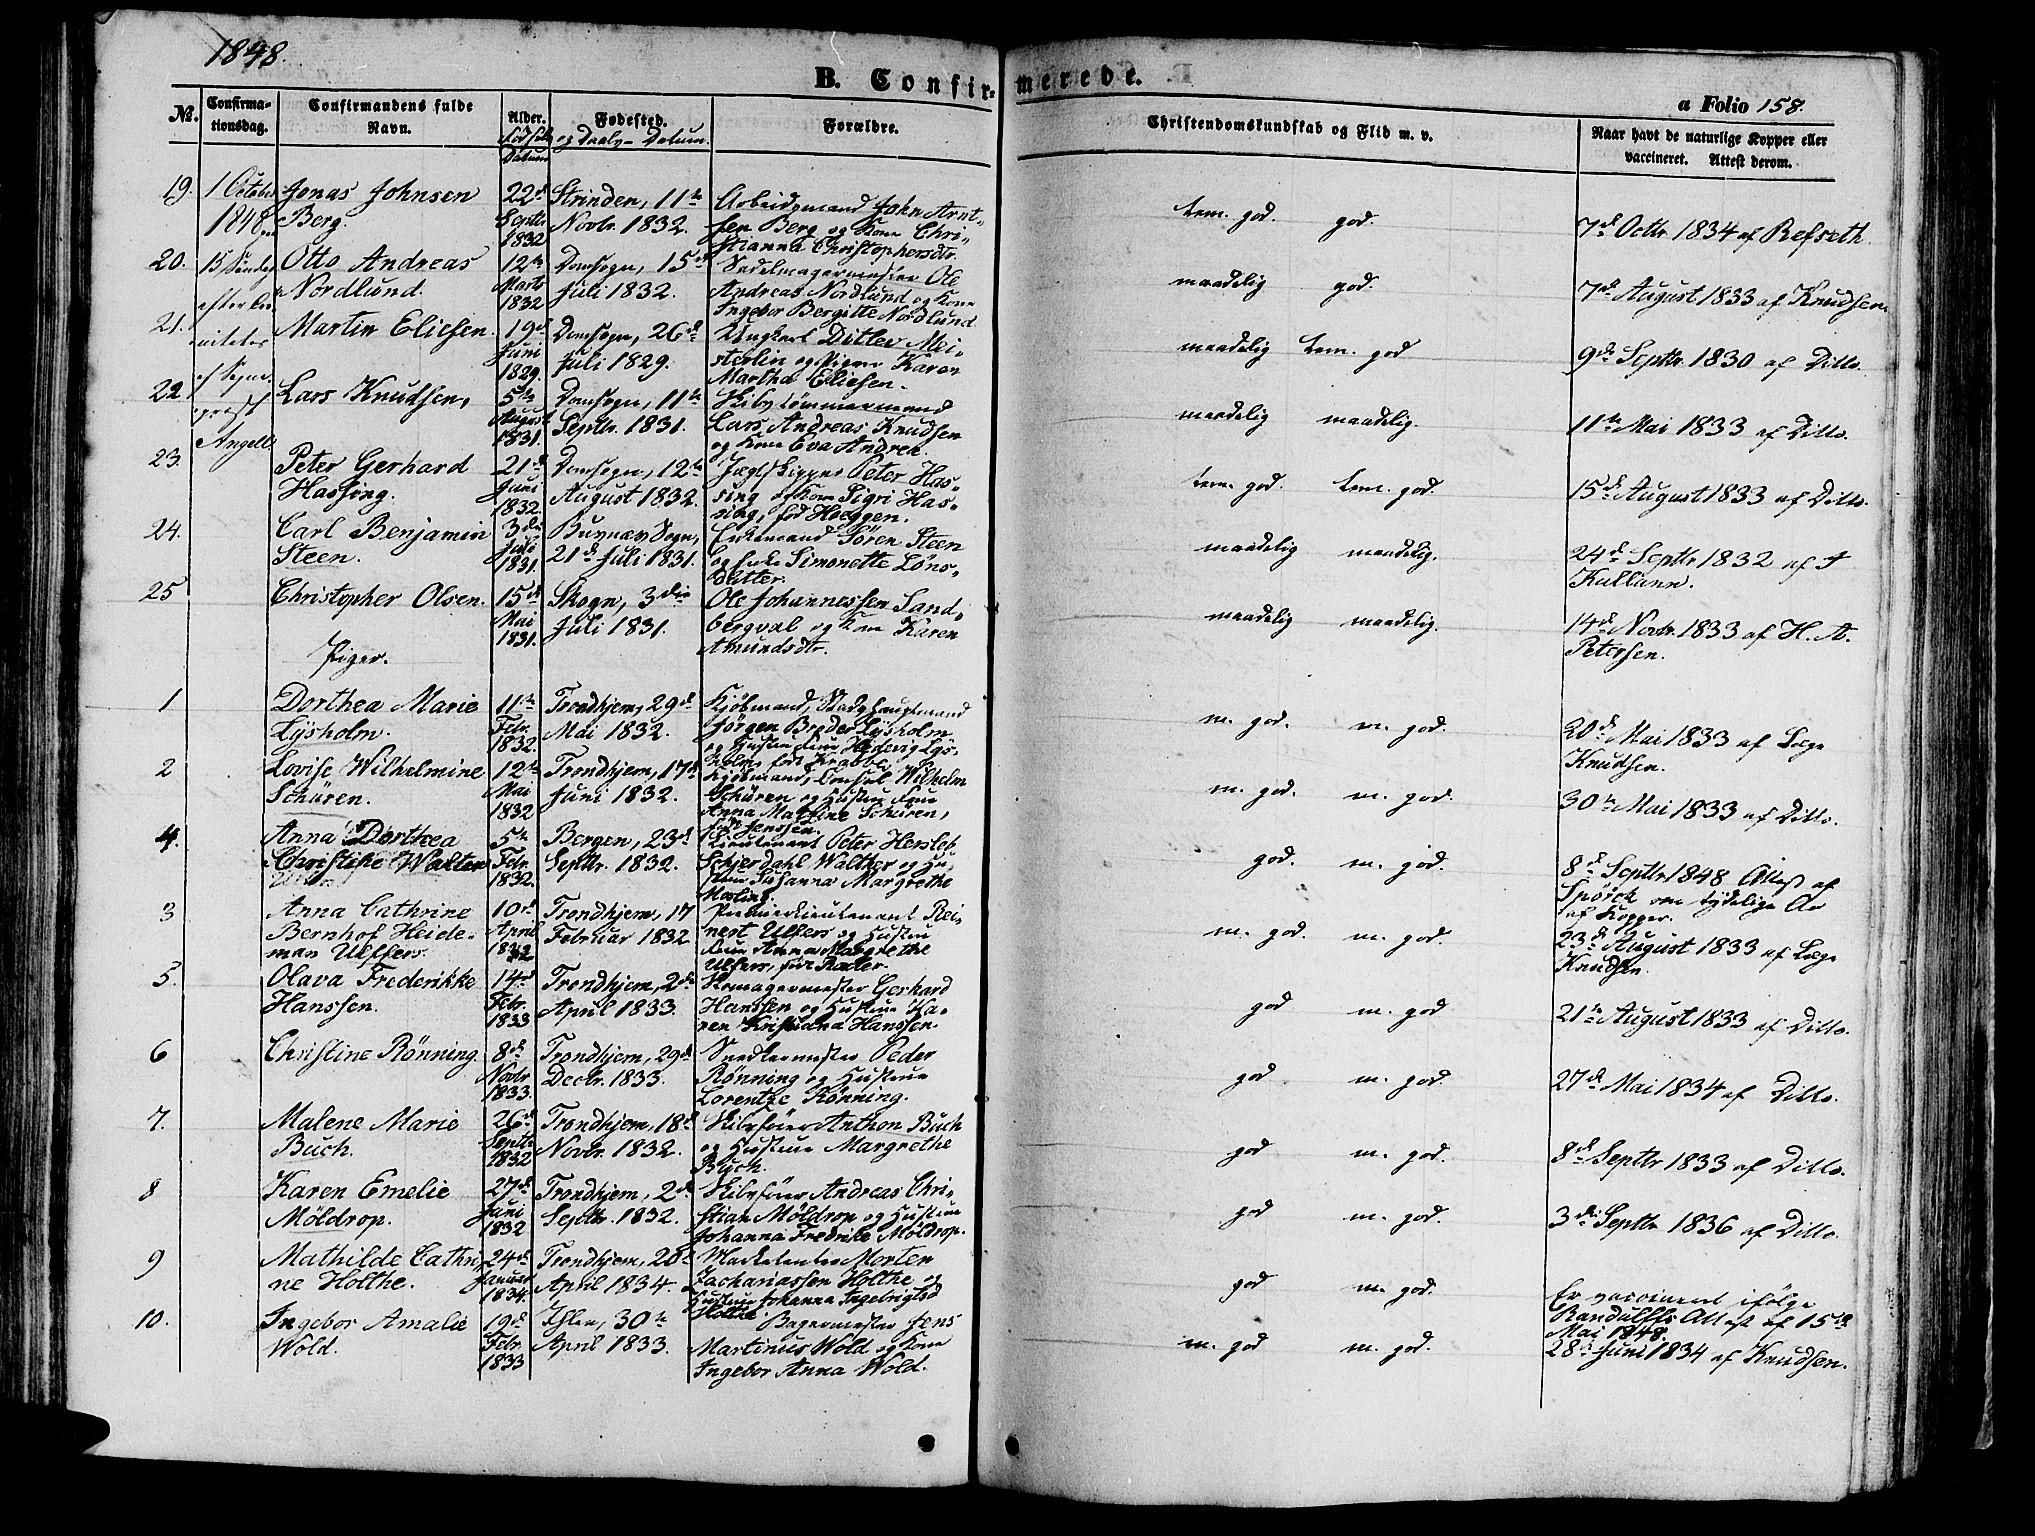 1848.
B. Confir-
merede.
a Folio 158.
№.
Confirma-
tionsdag.
Confirmandens fulde
Navn.
Alder.
Fødsels
Datum
Fødested.
og Daabs-Datum.
Forældre.
Christendomskundskab og Flid m. v.
Naar havt de naturlige Kopper eller
vaccineret. Attest derom.
19. 1 October Jonas Johnsen 22d Strinden, 11te Arbeidsmand John Arnt-
1848 Berg. Septbr. Novbr. 1832. sen Berg og Kone Chri-
1832 stianna Christophersdtr.
tem. god. god. 7de Octbr. 1834 af Refseth.
20. 15 Søndag Otto Andreas 12te Domsogn, 15de Sadelmagermester Ole
efter Nordlund. Marts Juli 1832. Andreas Nordlund og Kone
1832 Ingebor Bergitte Nordlund.
maadelig god. 7de August 1833 af Knudsen.
21. Martin Eliesen. 19de Domsogn, 26de Ungkarl Ditlev Mei-
Juni Juli 1829. sterlin og Pigen Karen
1829. Martha Eliesen.
maadelig tem. god 9de Septbr. 1830 af Ditto.
22 Lars Knudsen, 5te Domsogn, 11te Skibstømmermand
August Septbr. 1831. Lars Andreas Knudsen
1831. og Kone Eva Andrea.
Angell
maadelig maadelig. 11te Mai 1833 af Ditto.
23. Peter Gerhard 21de Domsogn, 12te Jægtskipper Peter Has-
Hassing. Juni August 1832. sing og Kone Sigri Has-
1832. sing, fød Hoeggen.
tem. god. tem. god. 15de August 1833 af Ditto.
24. Carl Benjamin 3die Sogn, Enkemand Sören Steen
Steen. Juli 21de Juli 1831. og Enke Simonette Löns-
1831. datter.
maadelig maadelig. 24de Septbr. 1832 af J
Kullann.
25 Christopher Olsen. 15de Skogn, 3die Ole Johannessen Sand-
Mai Juli 1831. bergval og Kone Karen
1831. Amundsdtr.
maadelig maadelig. 14de Novbr. 1833 af H. A.
Petersen.
Piger.
1 Dorthea Marie 11te Trondhjem, 29de Kjøbmand, Stadshauptmand
Lysholm. Febr. Mai 1832. Jørgen Breder Lysholm
1832. og Hustru Hedevig Lys-
holm, født Krabbe.
m. god. m. god. 20de Mai 1833 af Læge
Knudsen.
2 Lovise Wilhelmine 12te Trondhjem, 17de Kjøbmand, Consul Wilhelm
Schüren. Mai Juni 1832. Schüren og Hustru Frue
1832 Anna Schüren,
født Jenssen.
m. god. m. god. 30te Mai 1833 af Ditto.
4. Anna Dorthea 5te Bergen, 23de Lieutenant Peter Hersleb
Christine Walter Febr. Septbr. 1832. Schjerdahl Walther og Hu-
1832. stru Susanna Margrethe
god. m. god. 8de Septbr 1848 Attest af
Spörck om tydelige Ar
af Kopper.
3 Anna Cathrine 10de Trondhjem, 17 Premierlieutenant Rei-
Bernhof Heide- April Februar 1832 nert Ulffers og Hustru
man Ulffers. 1832 Frue Anna Margrethe
Ulffers, født Rader.
m. god. m. god. 23de August 1833 af Læge
Knudsen.
5. Olava Frederikke 14de Trondhjem, 2den Skomagermester Gerhard
Hanssen. Febr. April 1833. Hanssen og Hustru Ka-
1833 ren Kristiana Hanssen.
god m. god 21te August 1833 af Ditto.
6 Christine Rönning 8de Trondhjem, 29de Snedkermester Peder
Novbr. Decbr. 1833. Rönning og Hustrue
1833. Lorentze Rönning.
god m. god. 27de Mai 1834 af Ditto.
7. Malene Marie 26de Trondhjem, 18de Skibsfører Anthon Buch
Buch. Septbr. Novbr. 1832. og Hustrue Margrethe
1832 Buch.
god m. god. 8de Septbr 1833 af Ditto.
8 Karen Emelie 27de Trondhjem, 2den Skibsfører Andreas Chri-
Möldrop. Juni Septbr. 1832. stian Möldrop og Hustrue
1832 Johanna Fredrike Möldrop.
god m. god. 3die Septbr 1836 af Ditto.
9 Mathilde Cathri- 24de Trondhjem, 20de Marketenter Morten
ne Holthe. Januar April 1834. Zachariassen Holthe og
1834. Hustrue Johanna Ingebrigtsd
Holthe
god m. god. Er vaccineret ifølge
Randulffs Attest af 15de
Mai 1848.
10. Ingebor Amalie 19de Ihlen, 30te Bagermester Jens
Wold. Febr. April 1833. Martinus Wold og Kone
1833 Ingebor Anna Wold.
m. god m. god. 28de Juni 1834 af Knudsen.